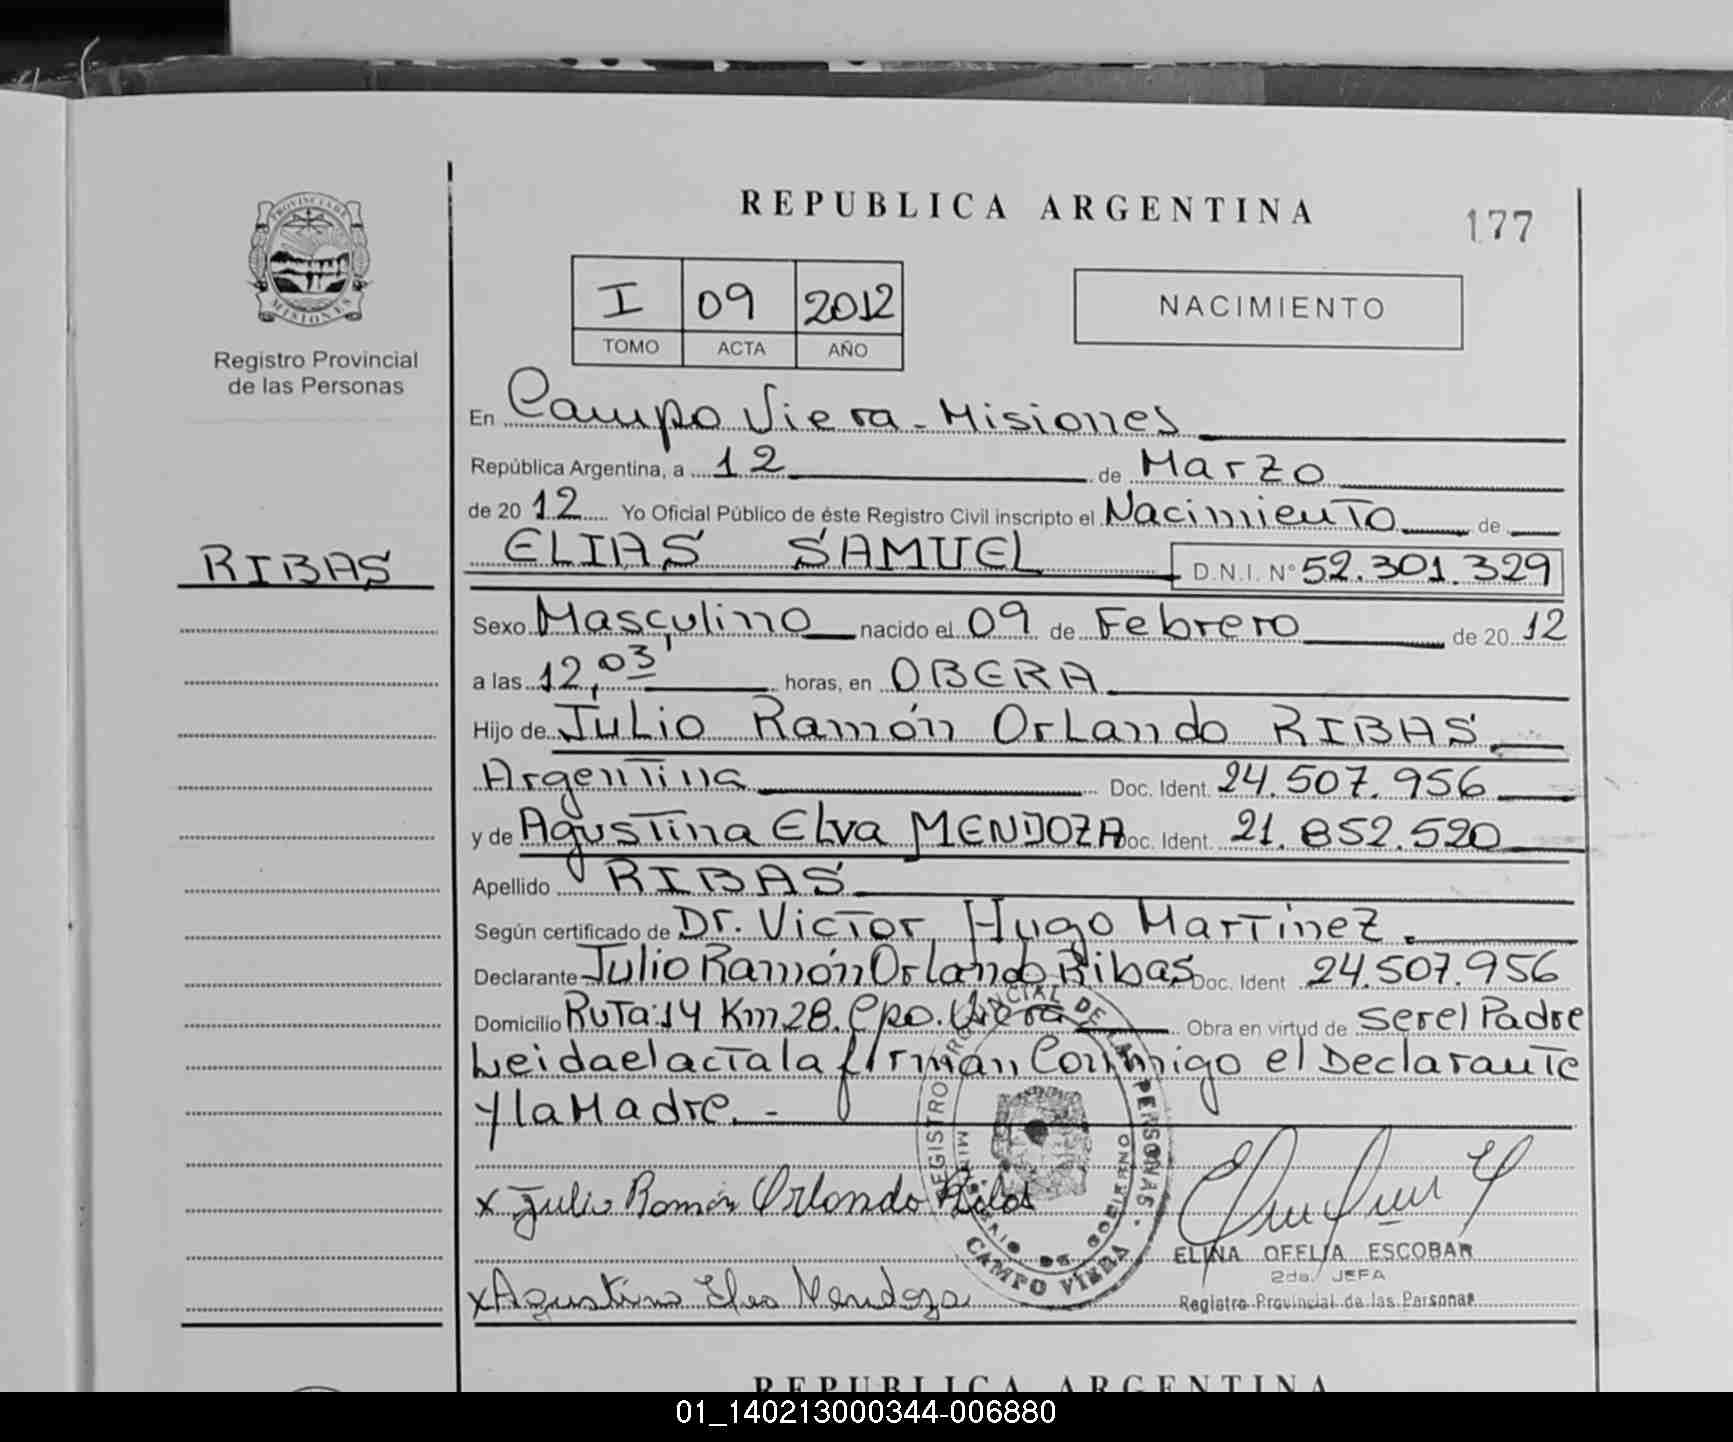 REPUBLICA ARGENTINA
177
PROVINCIA DE
MISIONES
Registro Provincial
de las Personas
I 09 2012
TOMO ACTA AÑO
NACIMIENTO
En Campo Viera - Misiones
República Argentina, a 12 de Marzo
de 20 12 Yo Oficial Público de éste Registro Civil inscripto el Nacimiento de
RIBAS
ELIAS SAMUEL D.N.I. N° 52.301.329
Sexo Masculino nacido el 09 de Febrero de 20 12
a las 12,03' horas, en OBERA
Hijo de Julio Ramón Orlando RIBAS
Argentina Doc. Ident. 24.507.956
y de Agustina Elva MENDOZA Doc. Ident. 21.852.520
Apellido RIBAS
Según certificado de Dr. Victor Hugo Martinez.
Declarante Julio Ramón Orlando Ribas Doc. Ident 24.507.956
Domicilio Ruta:14 Km 28. Cpo. Viera Obra en virtud de ser el Padre
Leida el acta la firman Conmigo el Declarante
y la Madre. -
REGISTRO PROVINCIAL DE LAS PERSONAS
MINISTERIO DE GOBIERNO
CAMPO VIERA
x Julio Ramón Orlando Ribas
ELINA OFELIA ESCOBAR
2da. JEFA
Registro Provincial de las Personas
x Agustina Elva Mendoza
REPUBLICA ARGENTINA
01_140213000344-006880